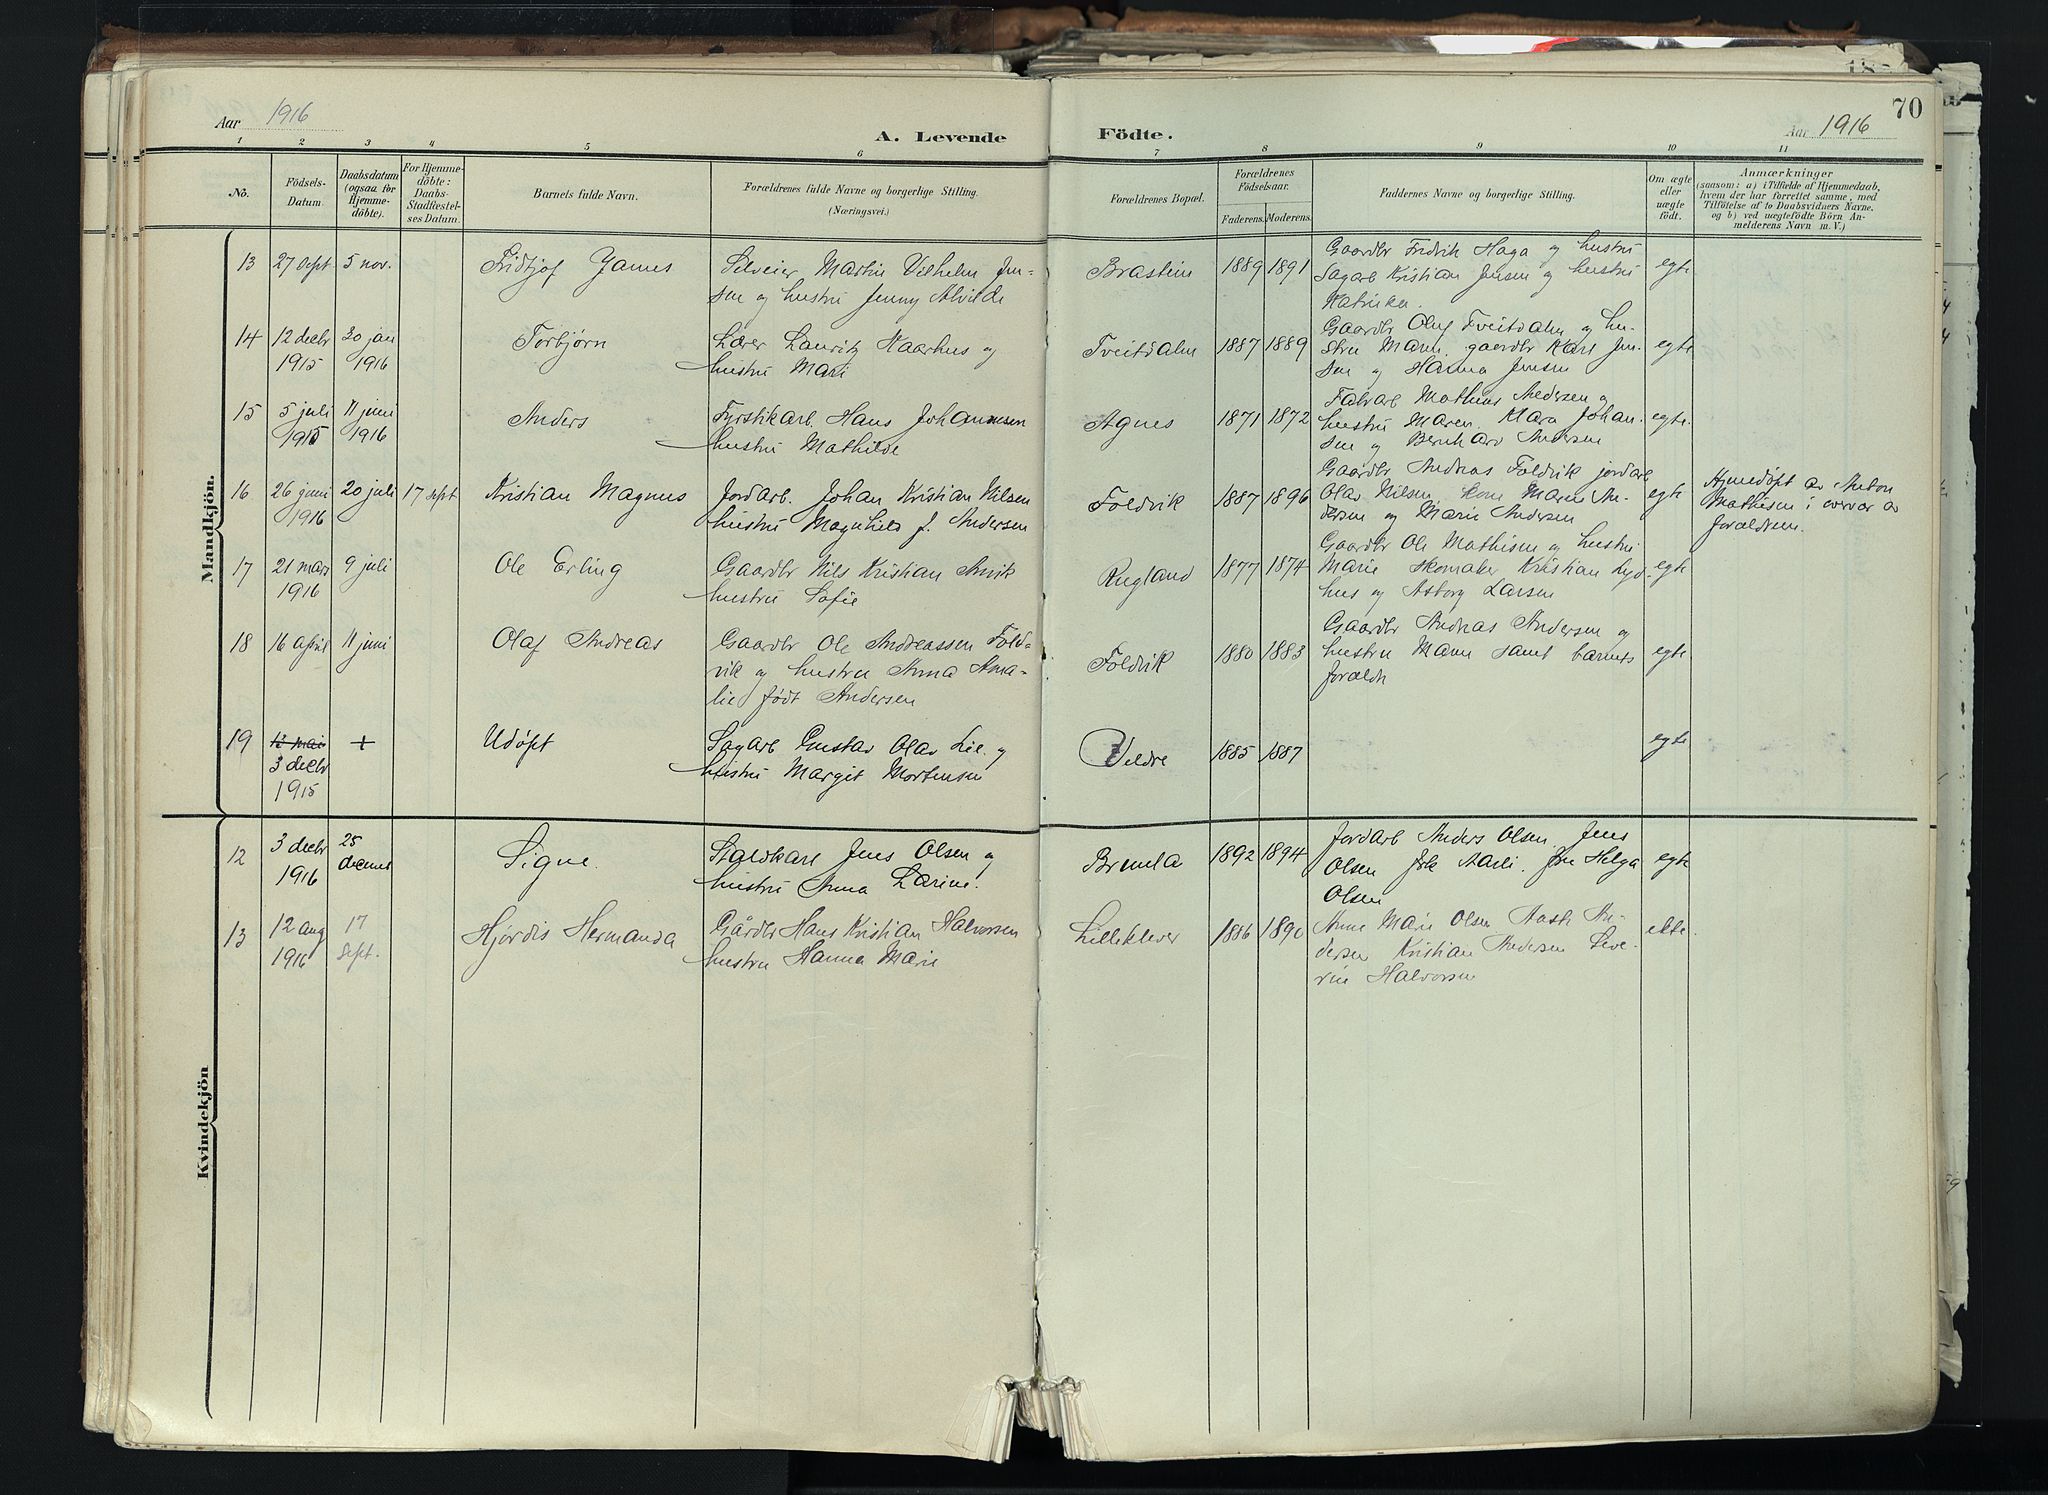 Aar 1916
A. Levende
Födte.
70
Aar 1916
1 2 3 4 5 6 7 8 9 10 11
No.
Födsels-
Datum.
Daabsdatum
(ogsaa for
Hjemme-
döbte).
For Hjemme-
döbte:
Daabs-
Stadfæstel-
ses Datum.
Barnets fulde Navn.
Forældrenes fulde Navne og borgerlige Stilling.
(Næringsvei.)
Forældrenes Bopæl.
Forældrenes
Födselsaar.
Faderens. Moderens.
Faddernes Navne og borgerlige Stilling.
Om ægte
eller
uægte
födt.
Anmærkninger
(saasom: a) i Tilfælde af Hjemmedaab,
hvem der har forrettet samme, med
Tilföielse af to Daabsvidners Navne,
og b) ved uægtefödte Börn An-
melderens Navn m. V.)
Mandkjön.
13 27 sept 5 nov. Fridtjof James
Martin Vilhelm Jen-
sen og hustru Jenny Alvilde
Brastein 1889 1891
Gaardbr Fridrik Haga og hustru
Sagarb Kristian Jensen og hustru
egte
14 12 decbr 1915
30 jan 1916
Torbjørn
Lærer Lauritz Kaarhus og
hustru Mari
Tveitdalen 1887 1889
Gaardbr Oluf Tveitdalen og hu-
stru Maren, gaardbr Karl Jen-
sen og Hanna Jensen
egte
15 5 juli 1915
11 juni 1916
Anders
Fyrstikarb. Hans Johannesen
hustru Mathilde
Agnes 1871 1872
Fabrarb Mathias Andersen og
hustru Maren. Klara Johan-
sen og Bernhard Andersen
egte.
16 26 juni 1916
20 juli 17 sept
Kristian Magnus
Jordarb. Johan Kristian Nilsen
hustru Magnhild J. Andersen
Foldvik 1887 1896
Gaardbr Andreas Foldvik jordarb
Olav Nilsen, kone Maren An-
dersen og Marie Andersen
egte
Hjemedøpt av Anton
Mathisen i nærvær av
forældrene.
17 21 mars 1916
9 juli
Ole Erling
Gaardbr Nils Kristian Anvik
hustru Sofie
Rugland 1877 1874
Gaardbr Ole Mathisen og hustru
Marie Skomaker Kristian Lyd-
hus og Asborg Larsen
egte
18 16 april 11 juni
Olaf Andreas
Gaardbr Ole Andreassen Fold-
vik og hustru Anna Ama-
lie født Andersen
Foldvik 1880 1883
Gaardbr Andreas Andersen og
hustru Maren samt barnets
foræld
egte
19 12 mai
3 decbr
1915
+
Udøpt
Sagarb Gustav Olav Lie og
hustru Margit Mortensen
Veldre 1885 1887
egte
Kvindekjön
12 3 decbr 1916
25 decmbr
Signe.
Staldkarl Jens Olsen og
hustru Anna Larine.
Brunla 1892 1894
Jordarb Anders Olsen, Jens
Olsen frk Aarli. Frk Helga
Olsen
egte
13 12 aug 1916
17 sept.
Hjørdis Hermanda
Gårdbr Hans Kristian Halvorsen
hustru Hanna Marie
Lilleklever 1886 1890
Anne Marie Olsen Aasta An-
dersen Kristian Andersen Seve-
rine Halvorsen
ekte